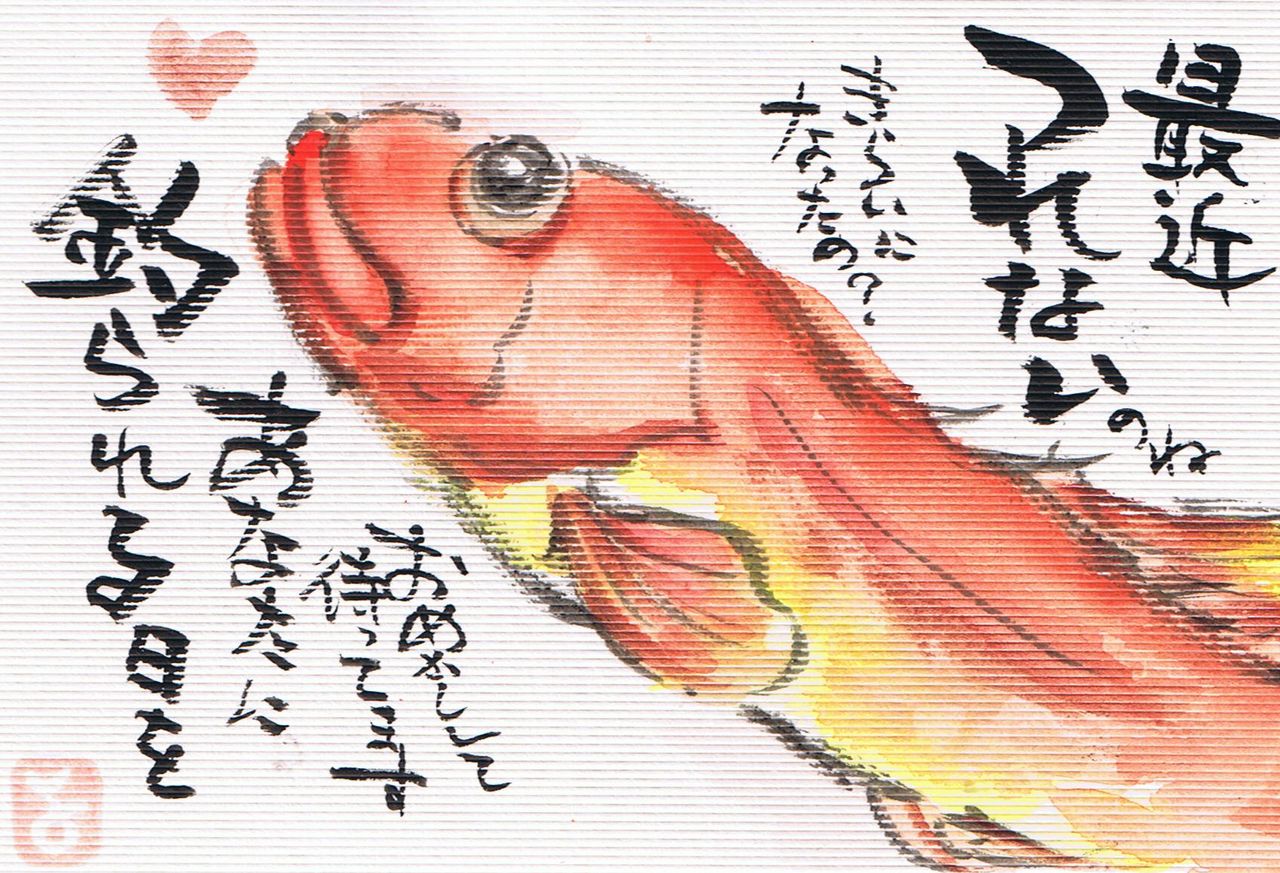 最近
つれないのね
きらいに
なったの？
おめかしして
待ってます
あなたに
釣られる日を